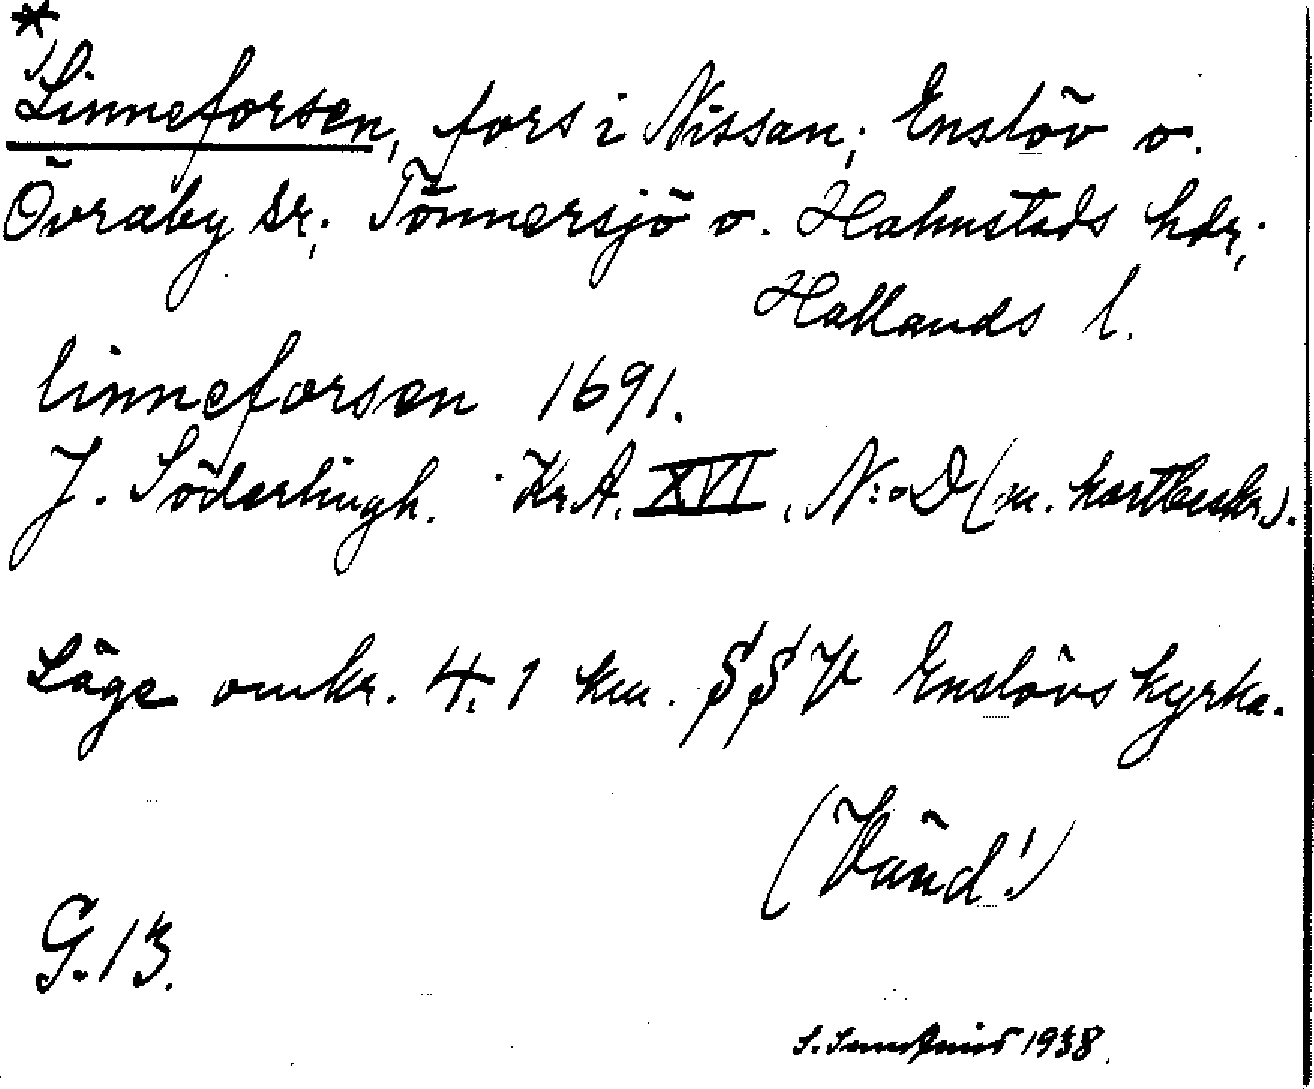 *
Linneforsen, fors i Nissan; Enslöv o.
Övraby sr; Tönnersjö o. Halmstads hdr;
Hallands l.
linneforsen 1691.
J. Söderlingh. Kr.A. XVI, N:o D (m. kartbeskr.).
Läge omkr. 4,1 km. SSV Enslövs kyrka.
(Vänd!)
G.13.
S. 1938.